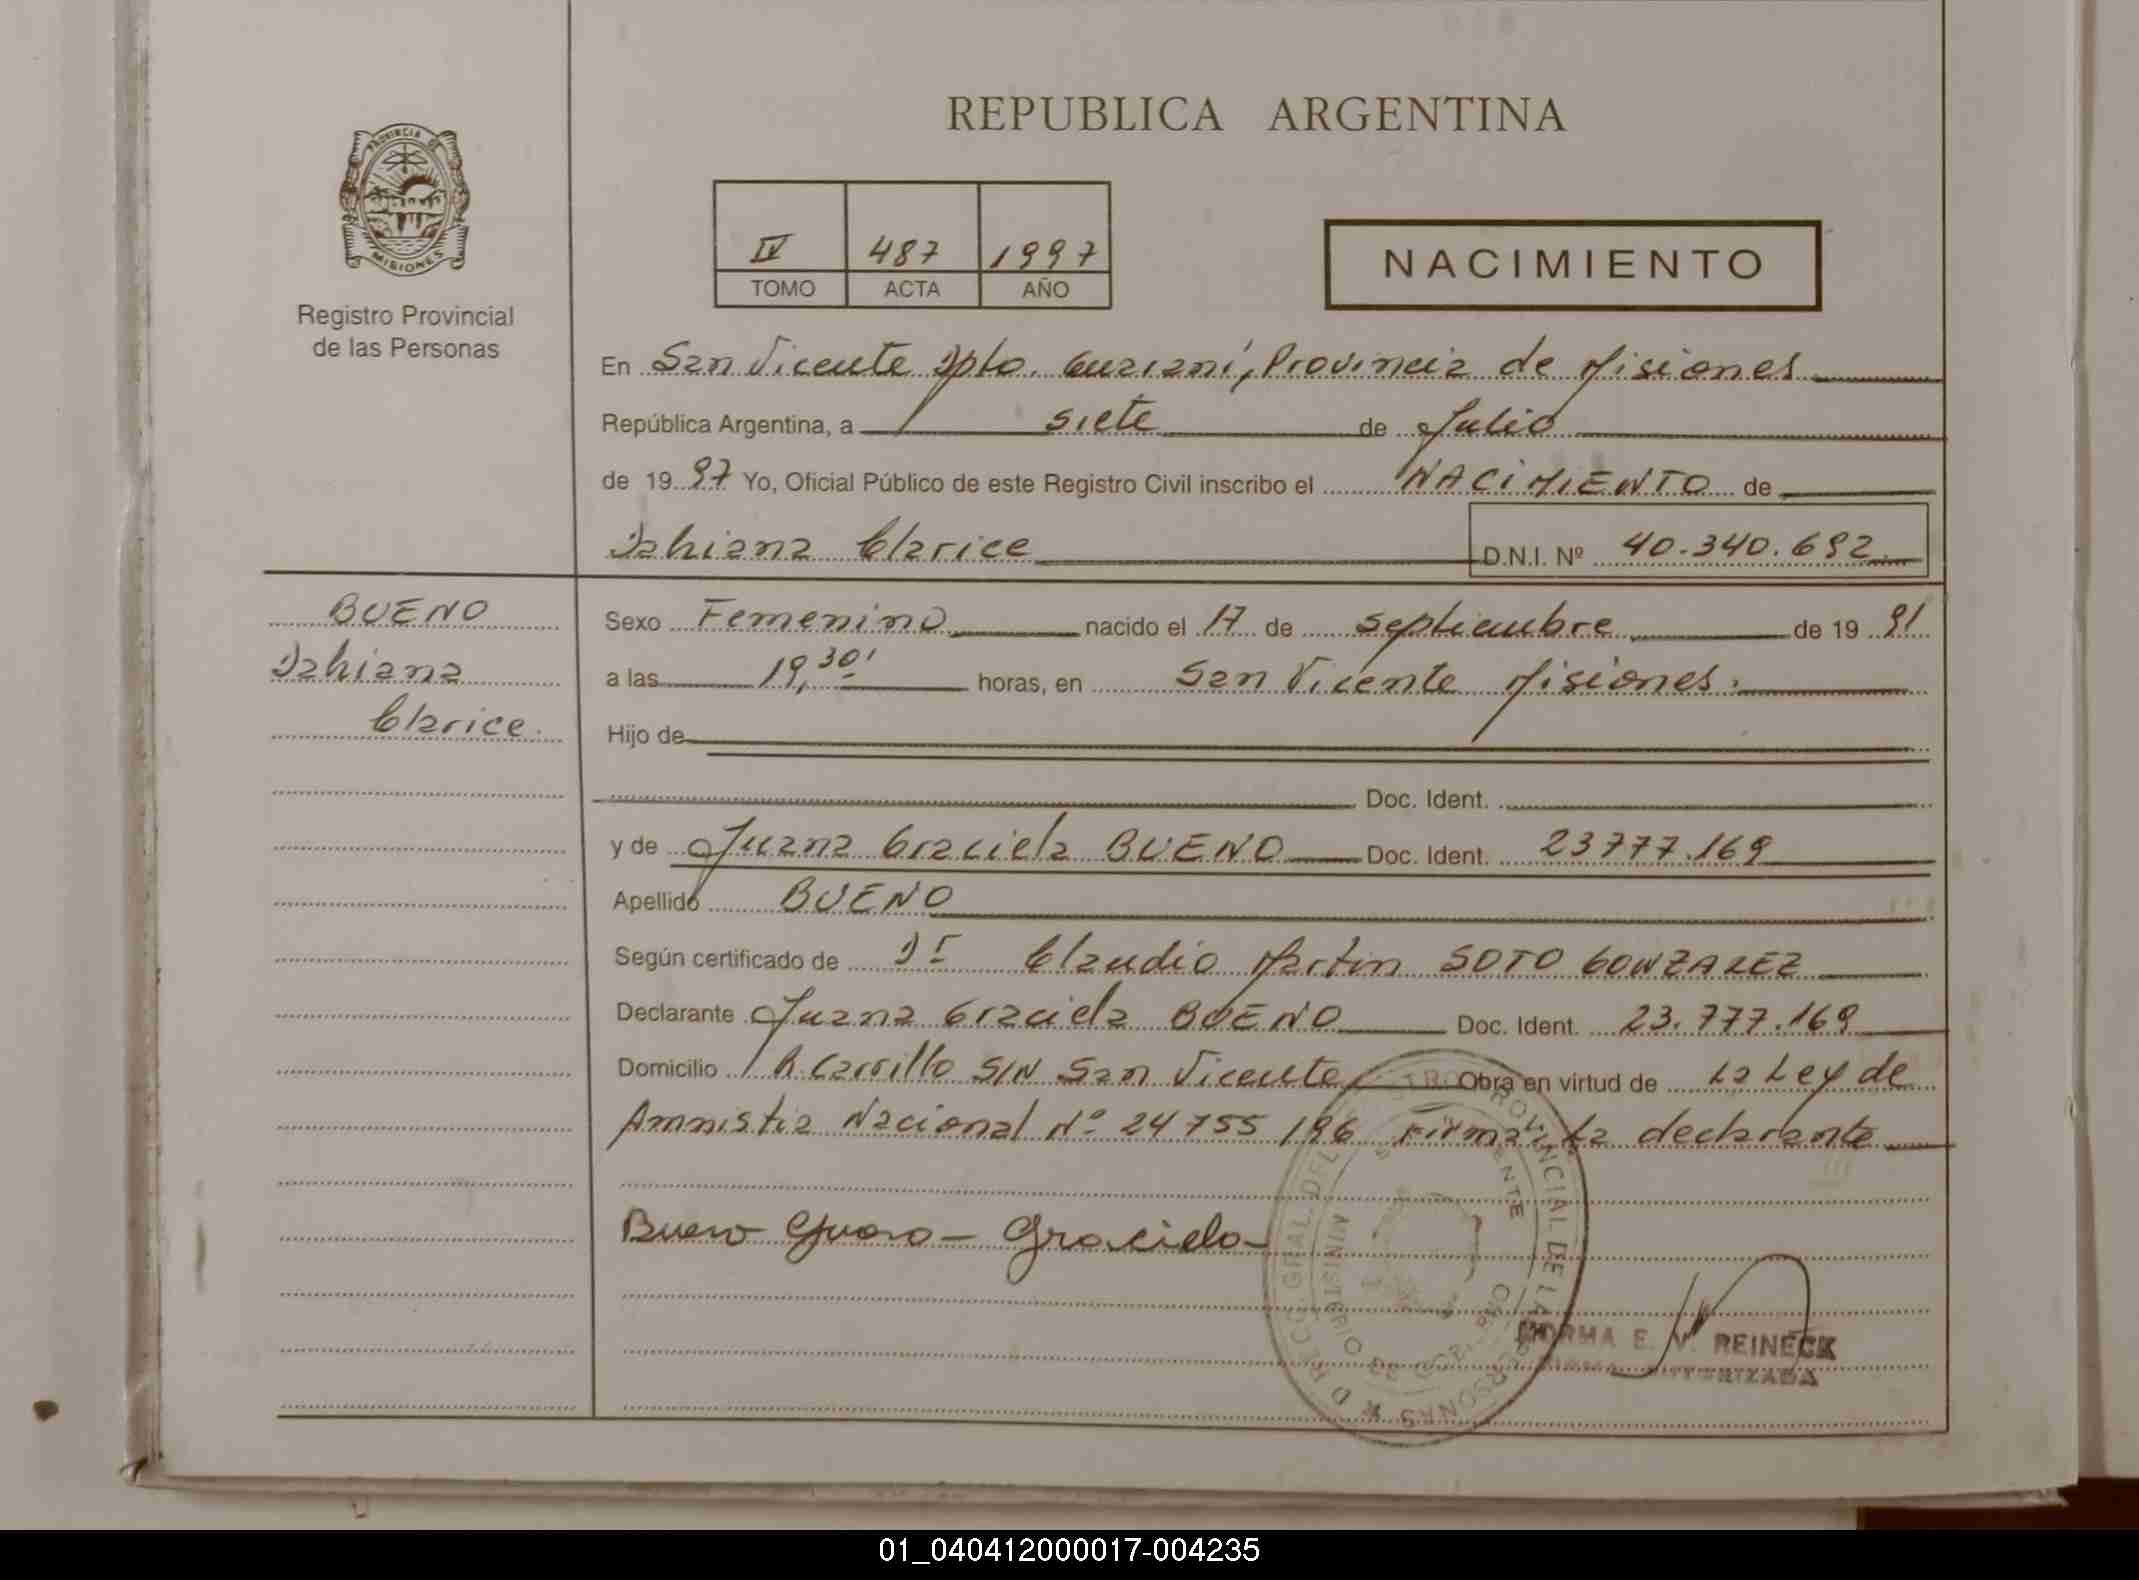 REPUBLICA ARGENTINA
PROVINCIA DE
MISIONES
Registro Provincial
de las Personas
IV 487 1997
TOMO ACTA AÑO
NACIMIENTO
En San Vicente Dpto. Guaraní, Provincia de Misiones
República Argentina, a siete de Julio
de 1997 Yo, Oficial Público de este Registro Civil inscribo el NACIMIENTO de
Dahiana Clarice D.N.I. Nº 40.340.692
BUENO
Dahiana
Clarice.
Sexo Femenino nacido el 17 de septiembre de 1991
a las 19,30' horas, en San Vicente Misiones.
Hijo de
Doc. Ident.
y de Juana Graciela BUENO Doc. Ident. 23777.169
Apellido BUENO
Según certificado de Dr Claudio Martin SOTO GONZALEZ
Declarante Juana Graciela BUENO Doc. Ident. 23.777.169
Domicilio R. Carrillo S/N San Vicente Obra en virtud de La Ley de
Amnistia Nacional Nº 24755/96 Firma La declarante
Bueno Juana Graciela
NORMA E. V. REINECK
FIRMA AUTORIZADA
01_040412000017-004235